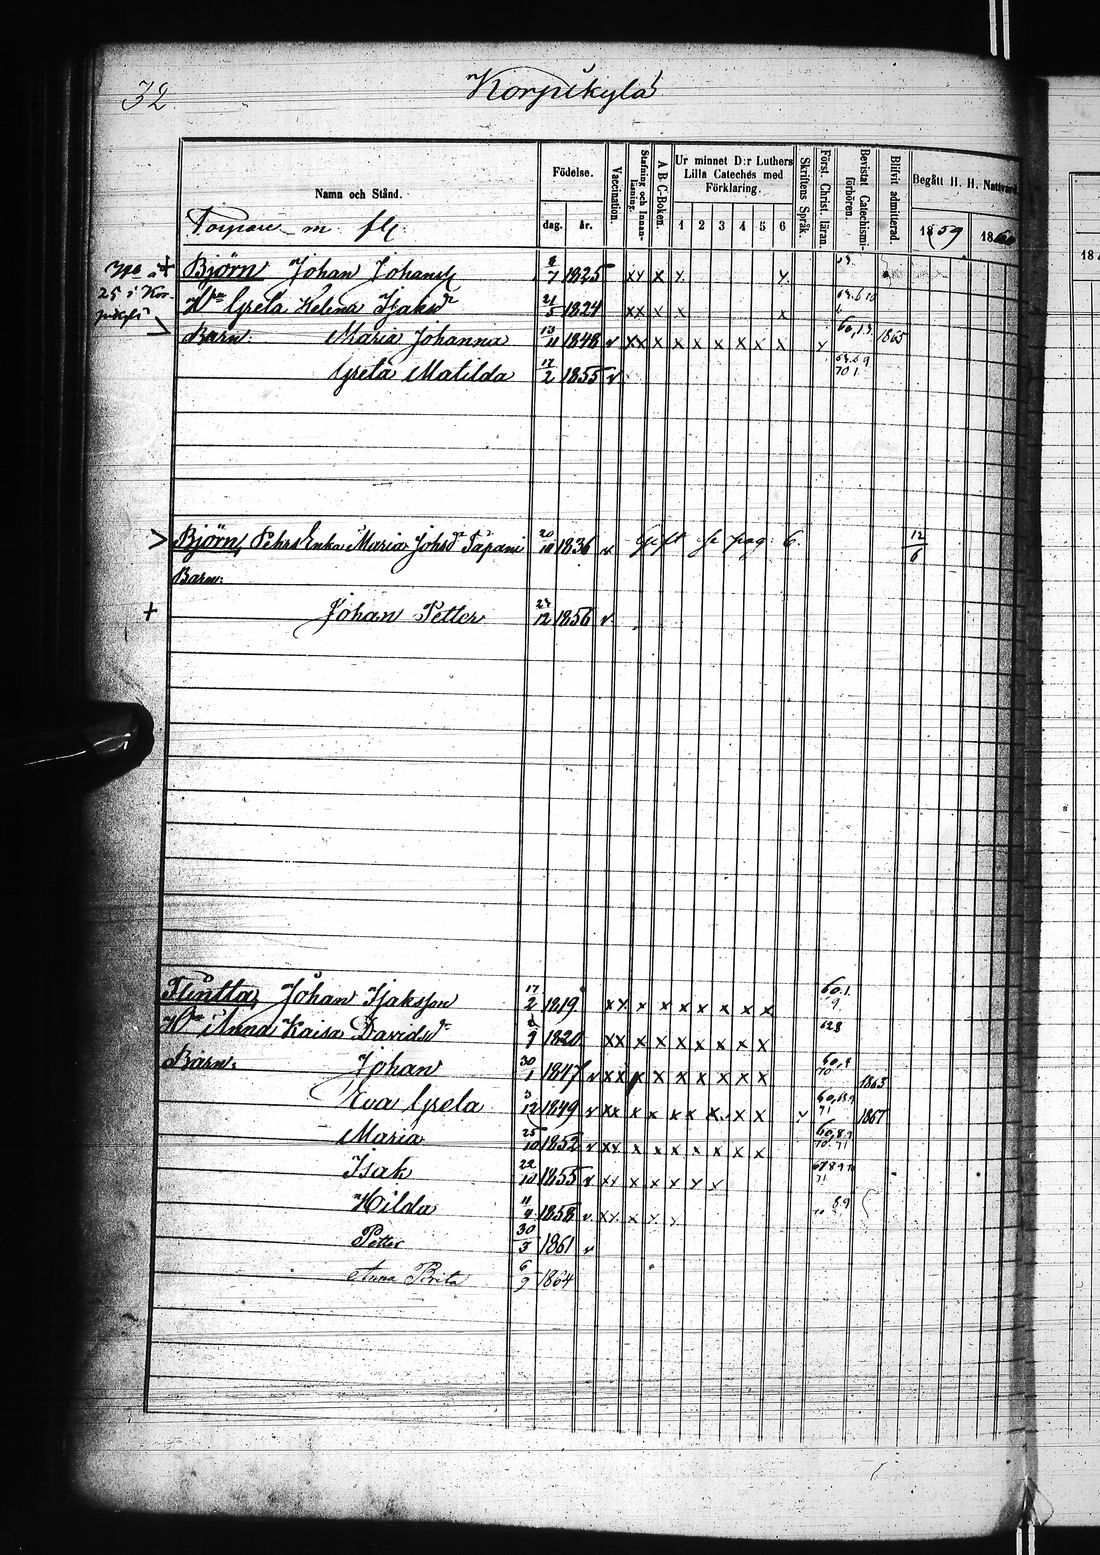 32.
Korpikylä
Namn och Stånd.
Födelse.
dag. år.
Vaccination.
Stafning och Innan-Läsning.
A B C-Boken.
Ur minnet D:r Luthers Lilla Cateches med Förklaring.
1 2 3 4 5 6
Skriftens Språk.
Förstå Christ. läran.
Bevistat Catechismi-förhören.
Blifvit admitterad.
Begått H. H. Nattvard
1859 1860
Torpare m. fl.
+ Björn Johan Johanss 1825 x x x x x
25 i Kor-
Hn Greta Helena Isaksdr 21/5 1824 x x x x x
Barn: Maria Johanna 13/11 1848 v x x x x x x x x x 1865
Greta Matilda 17/2 1855 v
> Björn, Pehrs Enka Maria Johsdr Tapani 20/10 1836 v Gift se pag. 6. 12/6
Barn:
+ Johan Petter 24/12 1856 v
Flintta, Johan Isaksson 17/2 1819 x x x x x x x x x
Hn Anna Kaisa Davidsdr 1820 x x x x x x x x x
Barn: Johan 30/1 1847 v x x x x x x x x x 1863
Eva Greta 3/12 1849 v x x x x x x x x x 1867
Maria 25/10 1852 v x x x x x x x x x
Isak 22/10 1855 v x x x x x x x
Hilda 11/4 1858 v x x x x x
Petter 30/3 1861 v
Anna Brita 6/9 1864